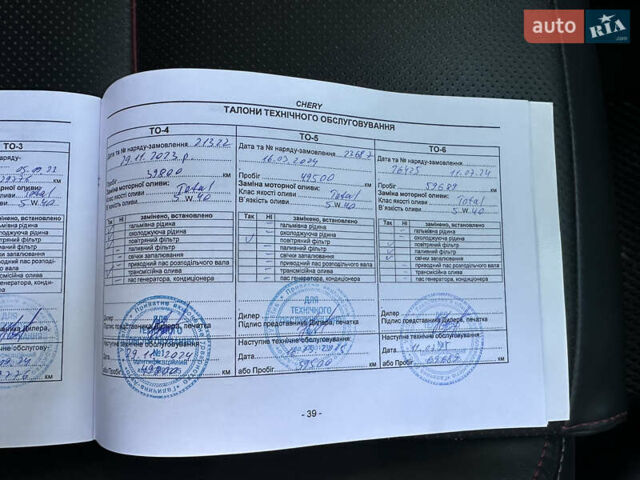 auto RIA .com
CHERY
ТАЛОНИ ТЕХНІЧНОГО ОБСЛУГОВУВАННЯ
ТО-3
05.09.23
км
Total
5 W 40
ТО-4
Дата та № наряду-замовлення 21322
29.11.2023 р.
39800 км
Заміна моторної оливи:
Клас якості оливи Total
В`язкість оливи 5 W 40
Так Ні замінено, встановлено
гальмівна рідина
охолоджуюча рідина
повітряний фільтр
паливний фільтр
свічки запалювання
приводний пас розподільчого вала
трансмісійна олива
пас генератора, кондиціонера
Дилер
Підпис представника Дилера, печатка
Наступне технічне обслуговування:
Дата 29.11.2024
або Пробіг 49800 км
ТО-5
Дата та № наряду-замовлення 23687
16.03.2024
49500 км
Заміна моторної оливи:
Клас якості оливи Total
В`язкість оливи 5 W 40
Так Ні замінено, встановлено
гальмівна рідина
охолоджуюча рідина
повітряний фільтр
паливний фільтр
свічки запалювання
приводний пас розподільчого вала
трансмісійна олива
пас генератора, кондиціонера
Дилер
Підпис представника Дилера, печатка
ДЛЯ ТЕХНІЧНОГО
Наступне технічне обслуговування:
Дата
або Пробіг 59500 км
ТО-6
Дата та № наряду-замовлення
26425 11.07.24
км
Заміна моторної оливи:
Клас якості оливи Total
В`язкість оливи 5 W 40
Так Ні замінено, встановлено
гальмівна рідина
охолоджуюча рідина
повітряний фільтр
паливний фільтр
свічки запалювання
приводний пас розподільчого вала
трансмісійна олива
пас генератора, кондиціонера
Дилер
Підпис представника Дилера, печатка
Наступне технічне обслуговування:
Дата
або Пробіг км
- 39 -